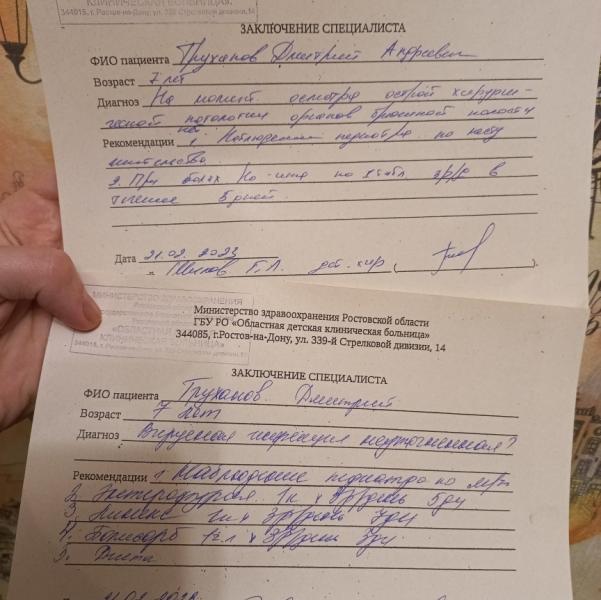 КЛИНИЧЕСКАЯ БОЛЬНИЦА»
344015, г. Ростов-на-Дону, ул. 339 Стрелковой дивизии, 14
ЗАКЛЮЧЕНИЕ СПЕЦИАЛИСТА
ФИО пациента Труханов Дмитрий Андреевич
Возраст 7 лет
Диагноз На момент осмотра острой хирурги-
ческой патологии органов брюшной полости
нет
Рекомендации 1. Наблюдение педиатра по месту
жительства.
2. При болях Но-шпа по 1 табл. 3р/д в
течение 5 дней.
Дата 21.02.2023
Г.Л. дет. хир (
).
МИНИСТЕРСТВО ЗДРАВООХРАНЕНИЯ
«ОБЛАСТНАЯ
КЛИНИЧЕСКАЯ БОЛЬНИЦА»
344015, г. Ростов-на-Дону, ул. 339 Стрелковой дивизии, 14
Министерство здравоохранения Ростовской области
ГБУ РО «Областная детская клиническая больница»
344085, г.Ростов-на-Дону, ул. 339-й Стрелковой дивизии, 14
ЗАКЛЮЧЕНИЕ СПЕЦИАЛИСТА
ФИО пациента Труханов Дмитрий
Возраст 7 лет
Диагноз Вирусная инфекция неуточненная?
Рекомендации 1 Наблюдение педиатра по м/ж
2. Энтерофурил 1к х 3р/день 5дн
3. х 3р/день 7дн
4. Полисорб 1ч.л х 3р/день 7дн.
5. Диета